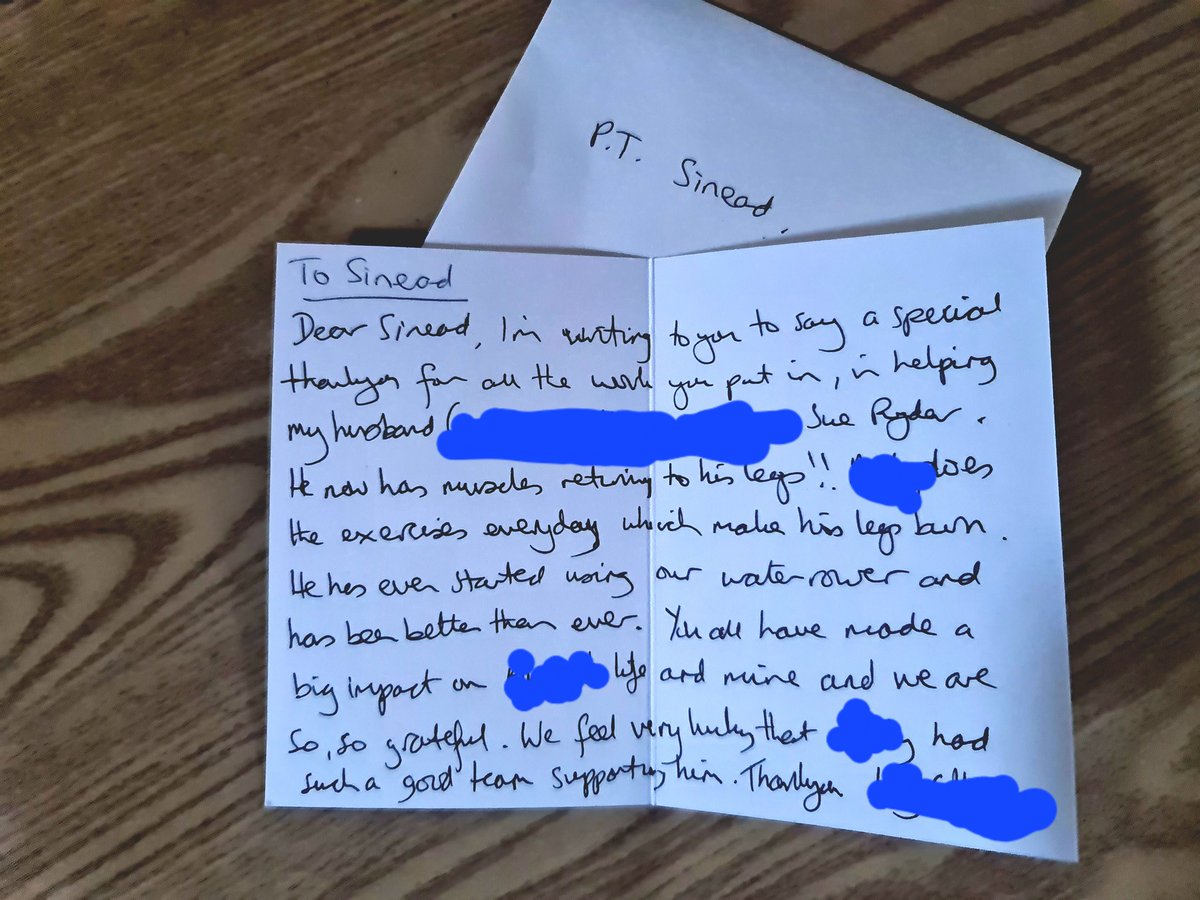 P.T. Sinead.
To Sinead
Dear Sinead, I'm writing to you to say a special
thankyou for all the work you put in, in helping
my husband ( Sue Ryder.
He now has muscles returing to his legs!! does
the exercises everyday which make his legs burn.
He has even started using our water rower and
has been better than ever. You all have made a
big impact on life and mine and we are
so, so grateful. We feel very lucky that had
such a good team supporting him. Thankyou